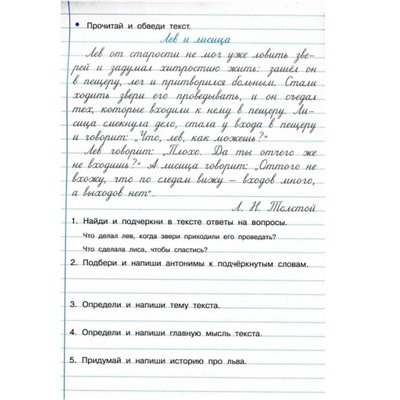 • Прочитай и обведи текст.
Лев и лисица
Лев от старости не мог уже ловить зве-
рей и задумал хитростию жить: зашёл он
в пещеру, лег и притворился больным. Стали
ходить звери его проведывать, и он съедал
тех, которые входили к нему в пещеру. Ли-
сица смекнула дело, стала у входа в пещеру
и говорит: „Что, лев, как можешь?"
Лев говорит: „Плохо. Да ты отчего же
не входишь?" А лисица говорит: „Оттого не
вхожу, что по следам вижу – входов много,
а выходов нет".
Л. Н. Толстой
1. Найди и подчеркни в тексте ответы на вопросы.
Что делал лев, когда звери приходили его проведать?
Что сделала лиса, чтобы спастись?
2. Подбери и напиши антонимы к подчёркнутым словам.
3. Определи и напиши тему текста.
4. Определи и напиши главную мысль текста.
5. Придумай и напиши историю про льва.